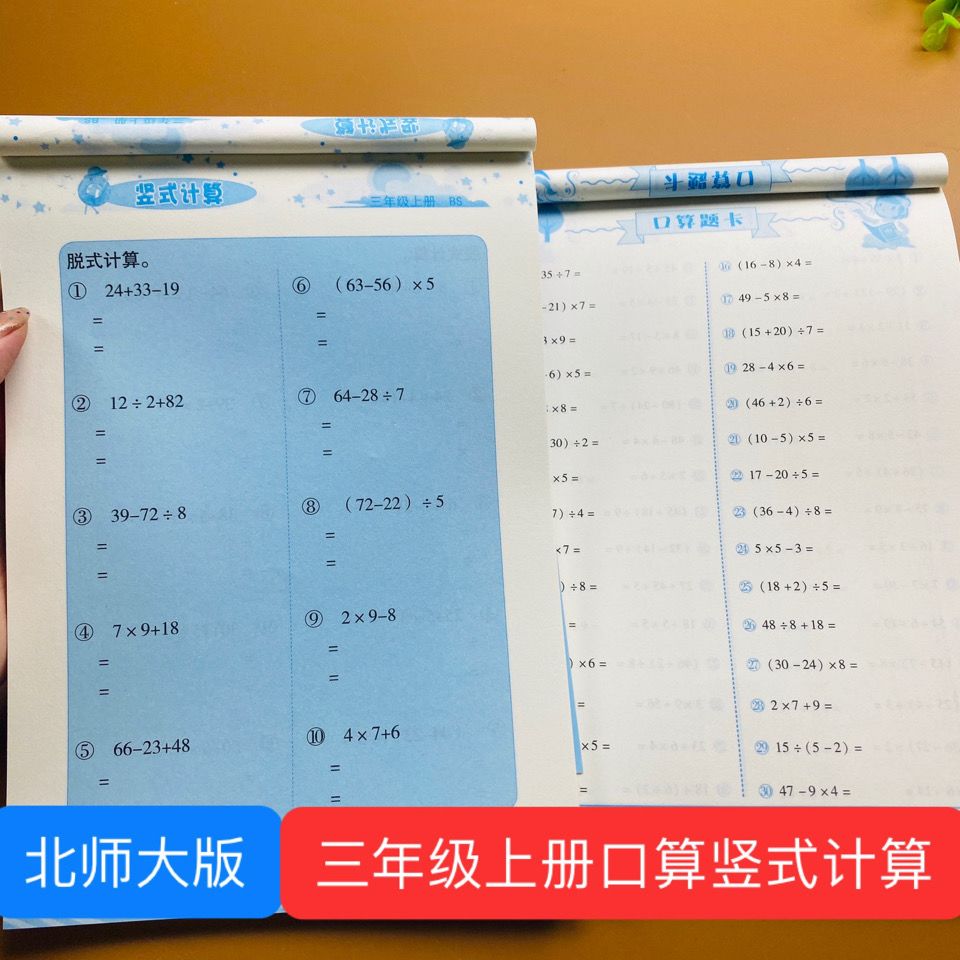 竖式计算
竖式计算
三年级上册 BS
脱式计算。
① 24+33-19
=
=
② 12÷2+82
=
=
③ 39-72÷8
=
=
④ 7×9+18
=
=
⑤ 66-23+48
=
⑥ （63-56）×5
=
=
⑦ 64-28÷7
=
=
⑧ （72-22）÷5
=
=
⑨ 2×9-8
=
=
⑩ 4×7+6
=
=
口算题卡
口算题卡
35÷7=
-21)×7=
×9=
6)×5=
×8=
30)÷2=
×5=
7)÷4=
×7=
)÷8=
=
)×6=
=
×5=
=
⑯ (16-8)×4=
⑰ 49-5×8=
⑱ (15+20)÷7=
⑲ 28-4×6=
⑳ (46+2)÷6=
㉑ (10-5)×5=
㉒ 17-20÷5=
㉓ (36-4)÷8=
㉔ 5×5-3=
㉕ (18+2)÷5=
㉖ 48÷8+18=
㉗ (30-24)×8=
㉘ 2×7+9=
㉙ 15÷(5-2)=
㉚ 47-9×4=
北师大版
三年级上册口算竖式计算